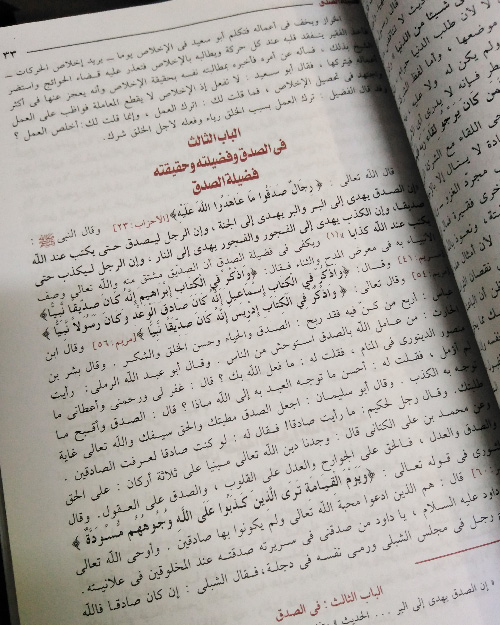 ٣٣
الخراز ويخفف في أعماله فتكلم أبو سعيد في الإخلاص يوما ـ يريد إخلاص الحركات ـ
الفقير يتفقد قلبه عند كل حركة ويطالبه بالإخلاص فتعذر عليه قضاء الحوائج واستضر
الشيخ بذلك ، فسأله عن أمره فأخبره بمطالبته نفسه بحقيقة الإخلاص وأنه يعجز عنها في أكثر
أعماله فيتركها ، فقال أبو سعيد : لا تفعل إذ الإخلاص لا يقطع المعاملة فواظب على العمل
واجتهد في تحصيل الإخلاص ، فما قلت لك : اترك العمل ، وإنما قلت لك : أخلص العمل ؟
وقد قال الفضيل : ترك العمل بسبب الخلق رياء وفعله لأجل الخلق شرك.
الباب الثالث
فى الصدق وفضيلته وحقيقته
فضيلة الصدق
قال الله تعالى : ﴿ رجال صدقوا ما عاهدوا الله عليه ﴾ [الأحزاب : ٢٣] وقال النبى ﷺ :
إن الصدق يهدى إلى البر والبر يهدى إلى الجنة ، وإن الرجل ليصدق حتى يكتب عند الله
صديقا، وإن الكذب يهدى إلى الفجور والفجور يهدى إلى النار ، وإن الرجل ليكذب حتى
يكتب عند الله كذابا » (١) ويكفى فى فضيلة الصدق أن الصديق مشتق منه والله تعالى وصف
الأنبياء به فى معرض المدح والثناء فقال : ﴿ واذكر فى الكتاب إبراهيم إنه كان صديقا نبيا ﴾
[مريم : ٤١] وقال : ﴿ واذكر فى الكتاب إسماعيل إنه كان صادق الوعد وكان رسولا نبيا ﴾
[مريم : ٥٤] وقال تعالى : ﴿ واذكر فى الكتاب إدريس إنه كان صديقا نبيا ﴾ [مريم : ٥٦] وقال ابن
عباس : أربع من كن فيه فقد ربح : الصدق والحياء وحسن الخلق والشكر . وقال بشر بن
الحارث : من عامل الله بالصدق استوحش من الناس . وقال أبو عبد الله الرملى : رأيت
منصور الدينورى فى المنام ، فقلت له : ما فعل الله بك ؟ قال : غفر لى ورحمنى وأعطانى ما
لم أؤمل ، فقلت له : أحسن ما توجه العبد به إلى الله ماذا ؟ قال : الصدق وأقبح ما
توجه به الكذب . وقال أبو سليمان : اجعل الصدق مطيتك والحق سيفك والله تعالى غاية
طلبتك . وقال رجل لحكيم : ما رأيت صادقا! فقال له : لو كنت صادقا لعرفت الصادقين .
وعن محمد بن على الكتانى قال : وجدنا دين الله تعالى مبنيا على ثلاثة أركان : على الحق
والصدق والعدل ، فالحق على الجوارح والعدل على القلوب ، والصدق على العقول . وقال
الثورى فى قوله تعالى : ﴿ ويوم القيامة ترى الذين كذبوا على الله وجوههم مسودة ﴾
٦٠] قال : هم الذين ادعوا محبة الله تعالى ولم يكونوا بها صادقين . وأوحى الله تعالى
داود عليه السلام ، يا داود من صدقنى فى سريرته صدقته عند المخلوقين فى علانيته.
رجل فى مجلس الشبلى ورمى نفسه فى دجلة ، فقال الشبلى : إن كان صادقا فالله
الباب الثالث : فى الصدق
« إن الصدق يهدى إلى البر ... الحديث »